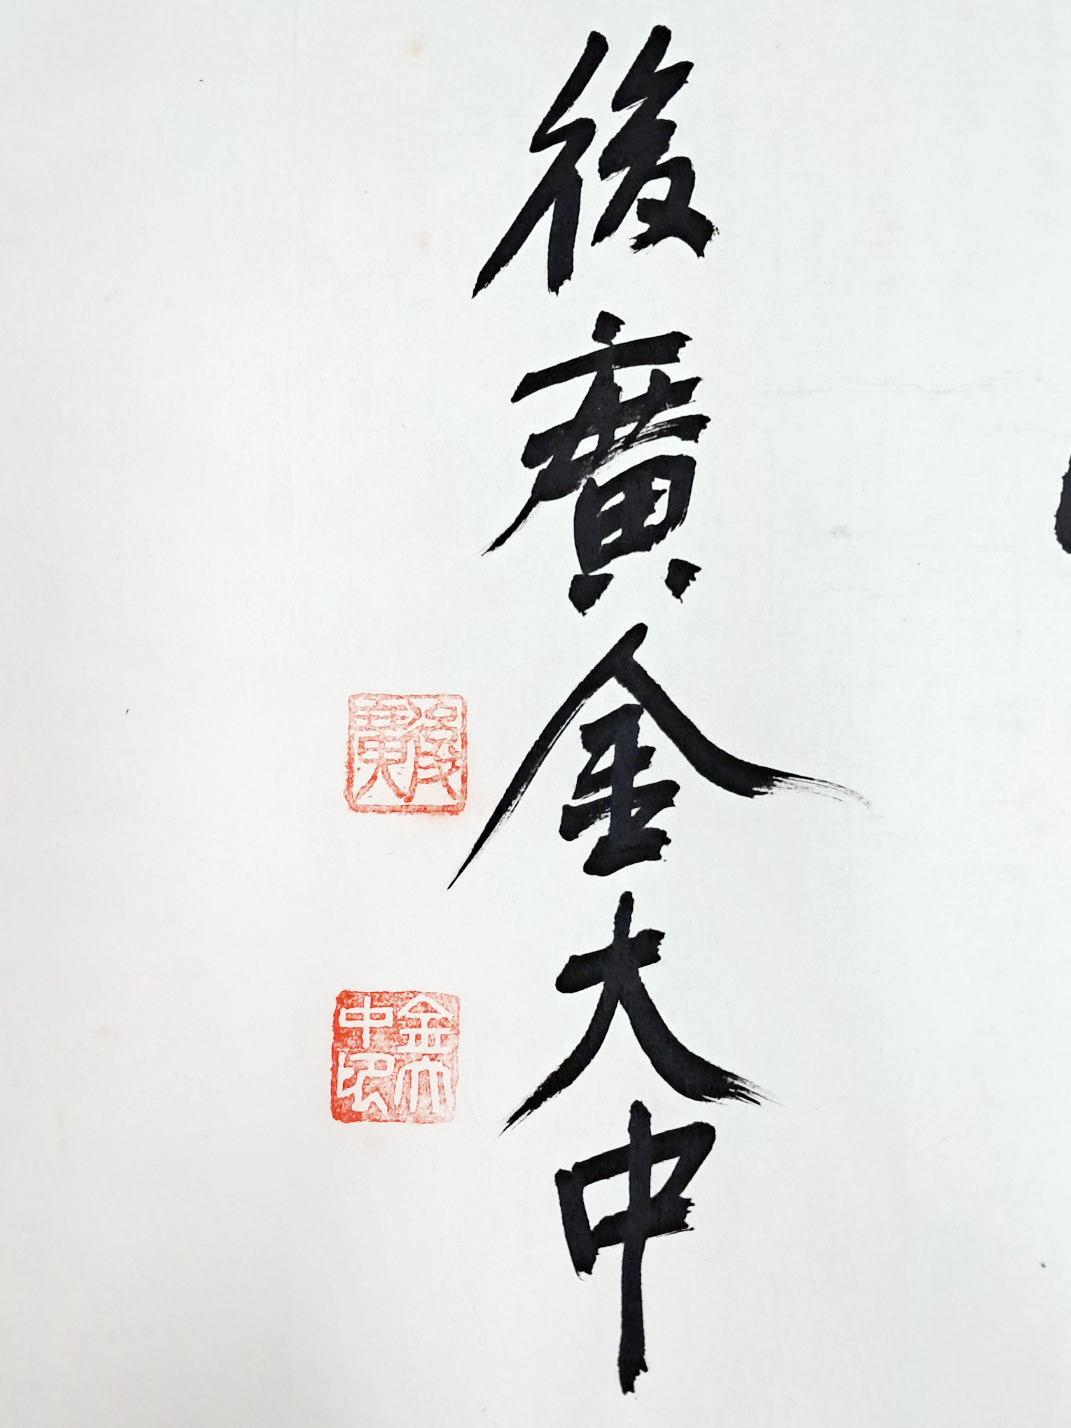 後廣金大中
後廣
金大中印